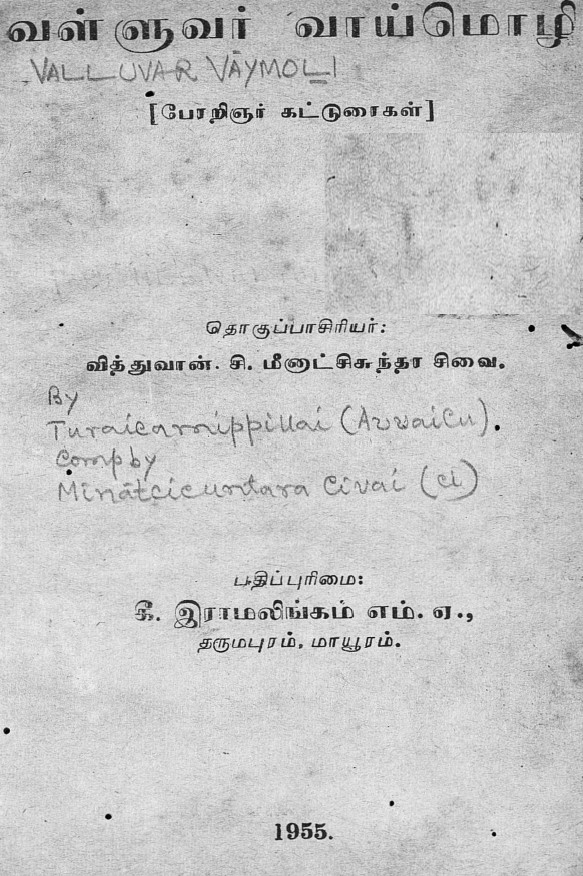 வள்ளுவர் வாய்மொழி
VALLUVAR VĀYMOLI
[பேரறிஞர் கட்டுரைகள்]
தொகுப்பாசிரியர்:
வித்துவான். சி. மீனாட்சிசுந்தர சிவை.
By
Turaicamippillai (AvvaiCu).
Comp by
Mīnātcicuntara Civai (ci)
பதிப்புரிமை:
கீ. இராமலிங்கம் எம். ஏ.,
தருமபுரம், மாயூரம்.
1955.